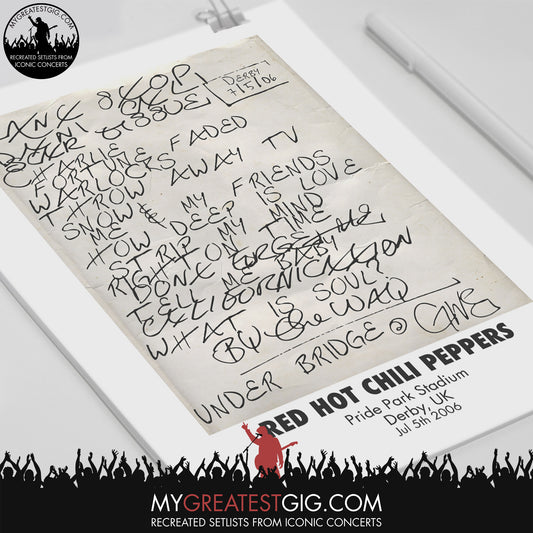 MYGREATESTGIG.COM
RECREATED SETLISTS FROM
ICONIC CONCERTS
DERBY
7/5/06
CAN'T STOP
DANI CAL
SCAR TISSUE
CHARLIE
FORTUNE FADED
WARLOCKS
THROW AWAY TV
SNOW
ME & MY FRIENDS
HOW DEEP IS LOVE
STRIP MY MIND
RIGHT ON TIME
DON'T FORGET ME
TELL ME BABY
CALIFORNICATION
WHAT IS SOUL?
By the WAY
UNDER BRIDGE
RED HOT CHILI PEPPERS
Pride Park Stadium
Derby, UK
Jul 5th 2006
MYGREATESTGIG.COM
RECREATED SETLISTS FROM ICONIC CONCERTS